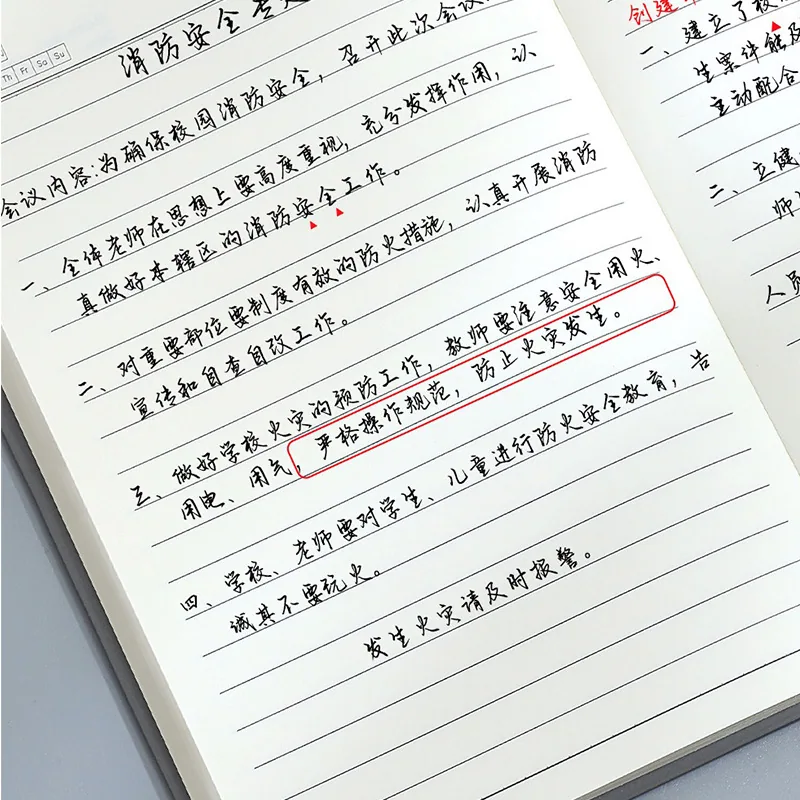 Th Fr Sa Su
消防安全
会议内容:为确保校园消防安全，召开此次会议
一、全体老师在思想上要高度重视，充分发挥作用，认
真做好本辖区的消防安全工作。
二、对重要部位要制度有效的防火措施，认真开展消防
宣传和自查自改工作。
三、做好学校火灾的预防工作，教师要注意安全用火、
用电、用气，严格操作规范，防止火灾发生。
四、学校、老师要对学生、儿童进行防火安全教育，告
诫其不要玩火。
发生火灾请及时报警。
创建
一、建立了校
生案件能及
主动配合
二、立健
师
人员